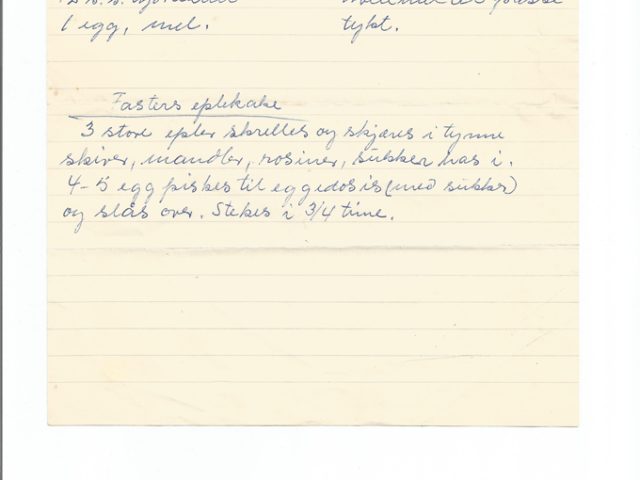 1 egg, mel.
tykt.
Fasters eplekake
3 store epler skrelles og skjæres i tynne
skiver, mandler, rosiner, sukker has i.
4-5 egg piskes til eggedosis (med sukker)
og slås over. Stekes i 3/4 time.